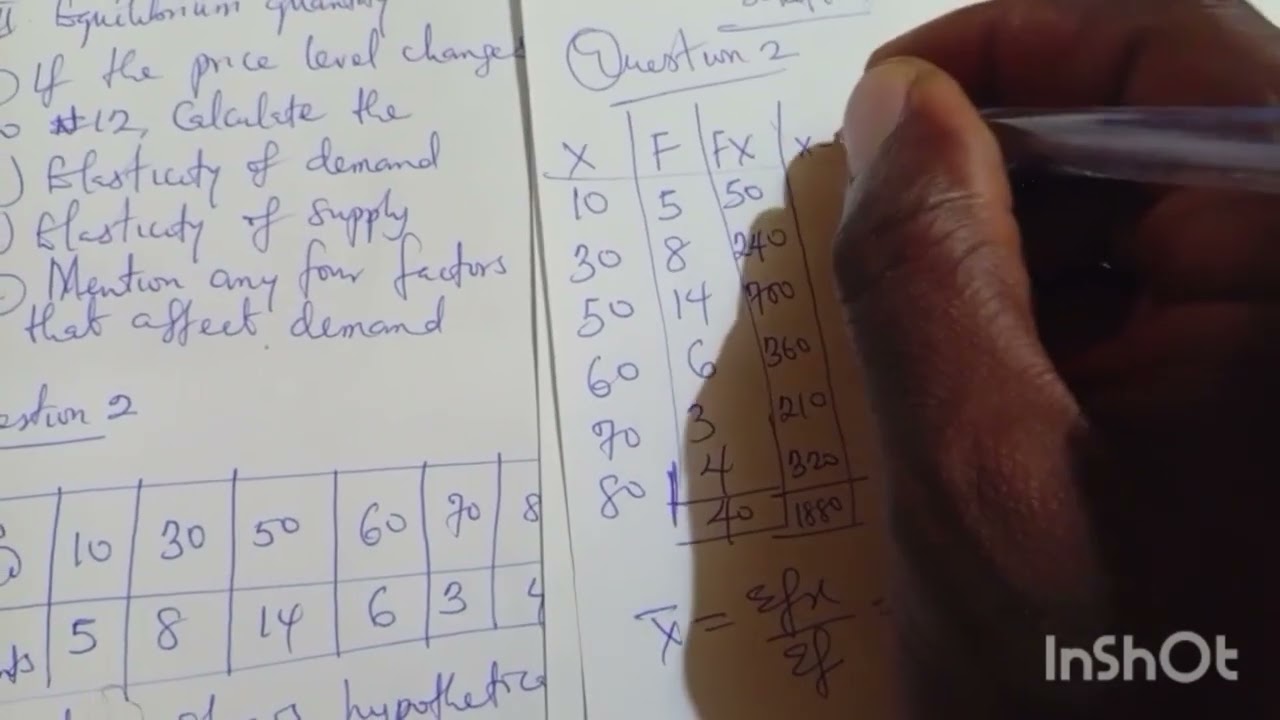 Equilibrium quantity
If the price level changes
12, Calculate the
Elasticity of demand
Elasticity of supply
Mention any four factors
that affect demand
estion 2
10 30 50 60 70 8
5 8 14 6 3 4
hypothetica
Question 2
X F FX X-
10 5 50
30 8 240
50 14 700
60 6 360
70 3 210
80 4 320
40 1880
x̄ = Σfx / Σf =
InShOt